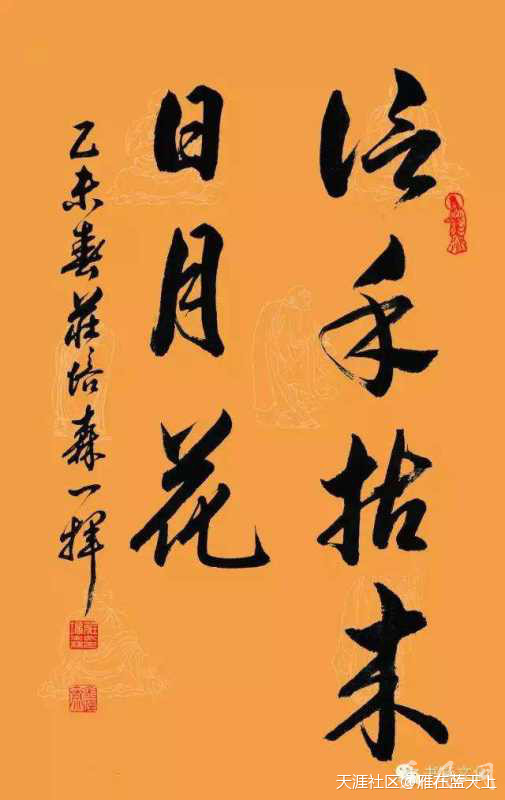 信手拈来
日月花
乙未春莊培森一揮
天涯社区@雁在蓝天上